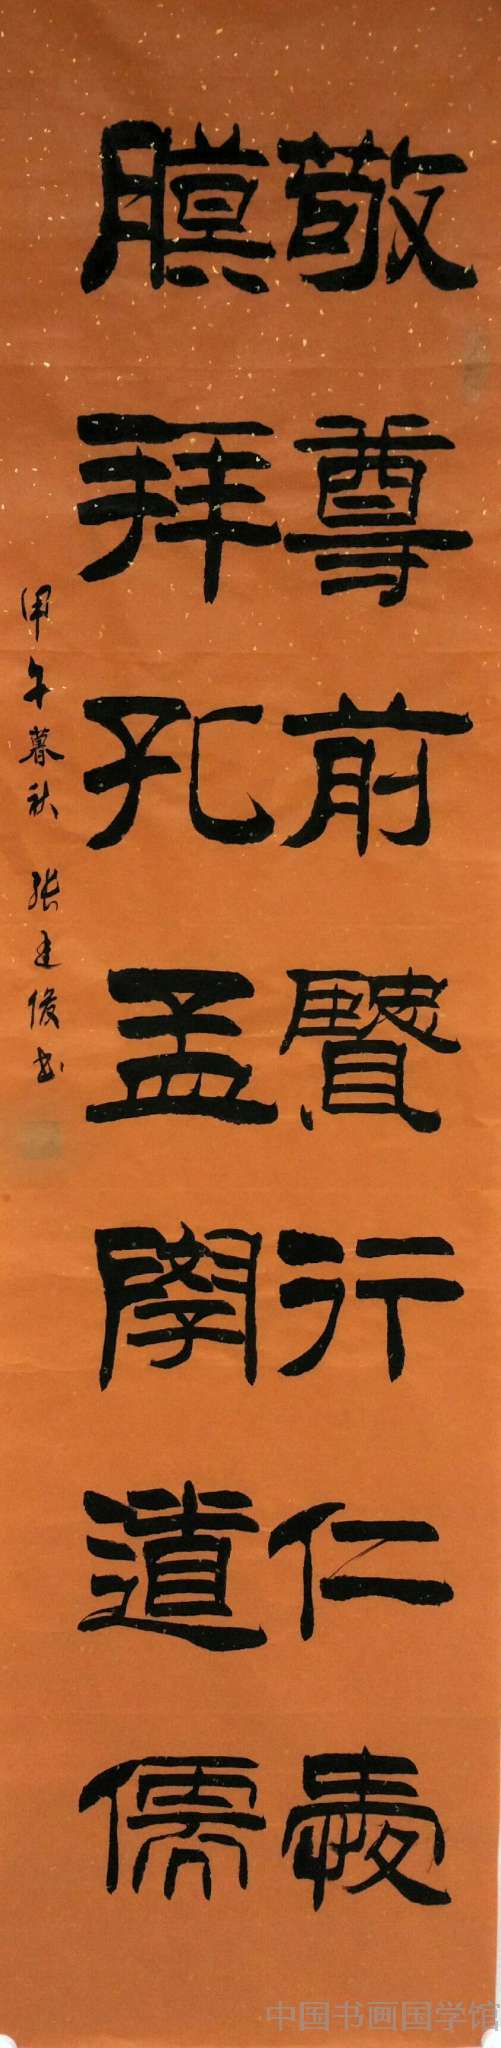 敬尊前賢行仁愛
膜拜孔孟學道儒
甲午暮秋 张建俊书
中国书画国学馆